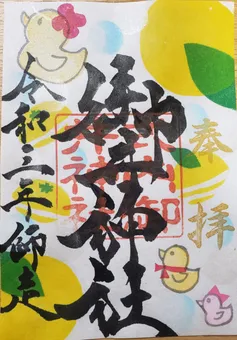 奉拝
御井神社
令和三年師走